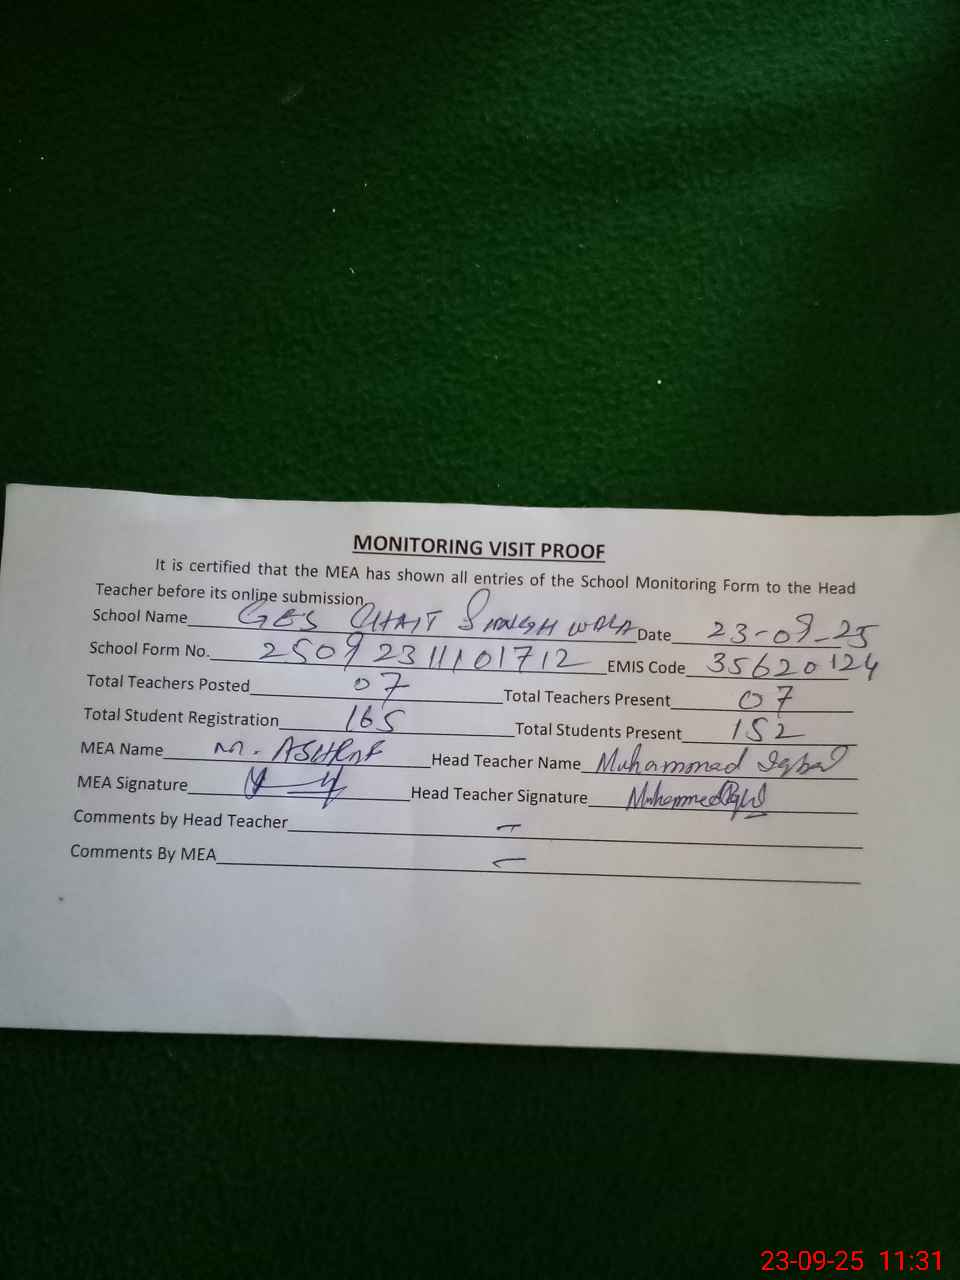 MONITORING VISIT PROOF
It is certified that the MEA has shown all entries of the School Monitoring Form to the Head
Teacher before its online submission.
School Name GES CHAIT SINGH WALA Date 23-09-25
School Form No. 2509231101712 EMIS Code 35620124
Total Teachers Posted 07 Total Teachers Present 07
Total Student Registration 165 Total Students Present 152
MEA Name M. ASHRAF Head Teacher Name Muhammad Iqbal
MEA Signature Head Teacher Signature Muhammad Iqbal
Comments by Head Teacher —
Comments By MEA —
23-09-25 11:31